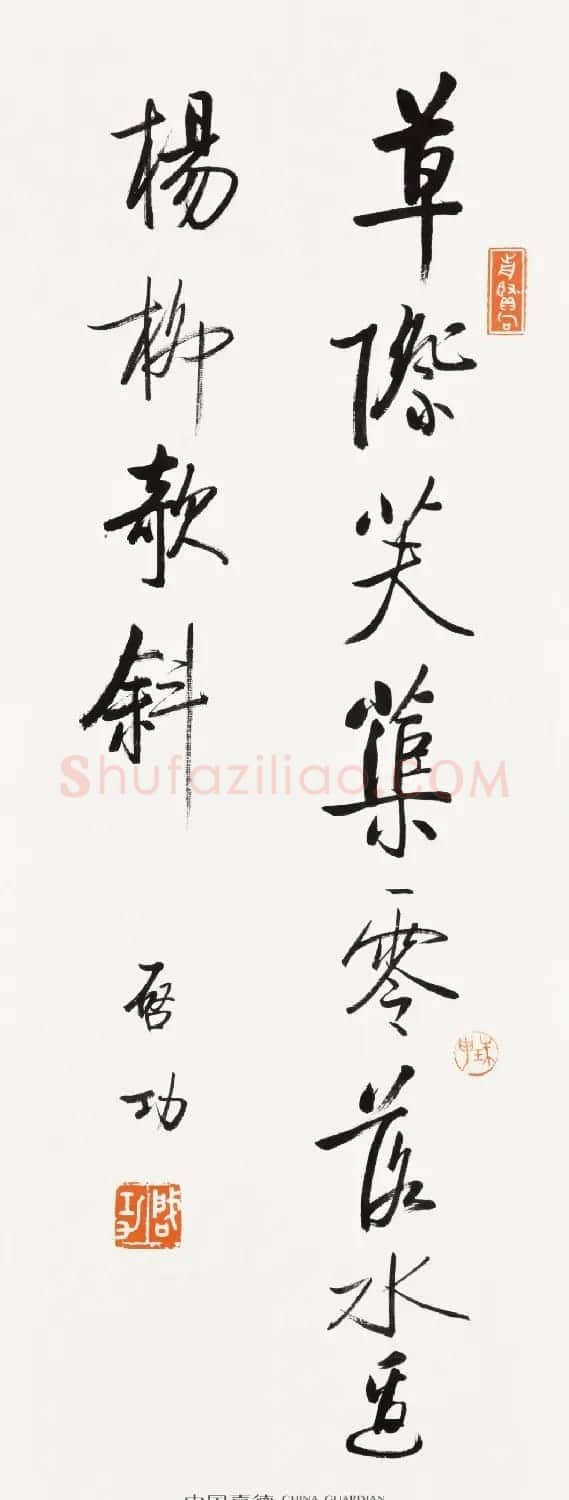 草際芙蕖零落水邊
楊柳欹斜
啓功
啓功
珠申
Shufaziliao.COM
中国嘉德 CHINA GUARDIAN